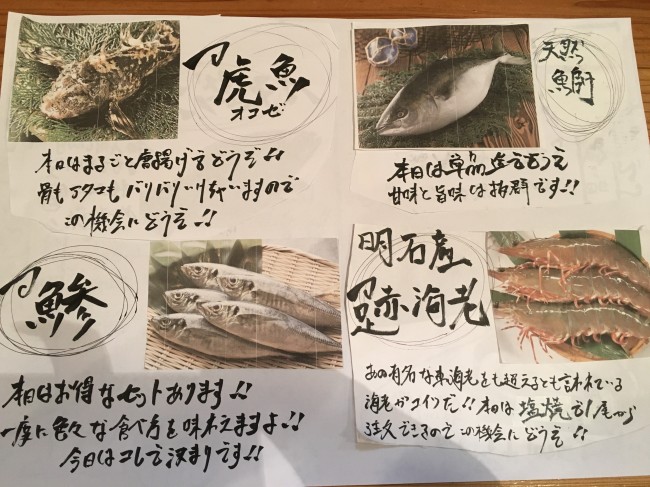 虎魚
オコゼ
本日はまるごと唐揚げでどうぞ!!
骨もアタマもバリバリいけちゃいますので
この機会にどうぞ!!
天然
鰤
本日は単品
甘味と旨味は抜群です!!
鯵
本日はお得なセットあります!!
一度に色々な食べ方を味わえますよ!!
今日はコレで決まりです!!
明石産
足赤海老
あの有名な車海老をも超えるとも言われている
海老がコイツだ!!本日は塩焼で1尾から
注文できるのでこの機会にどうぞ!!